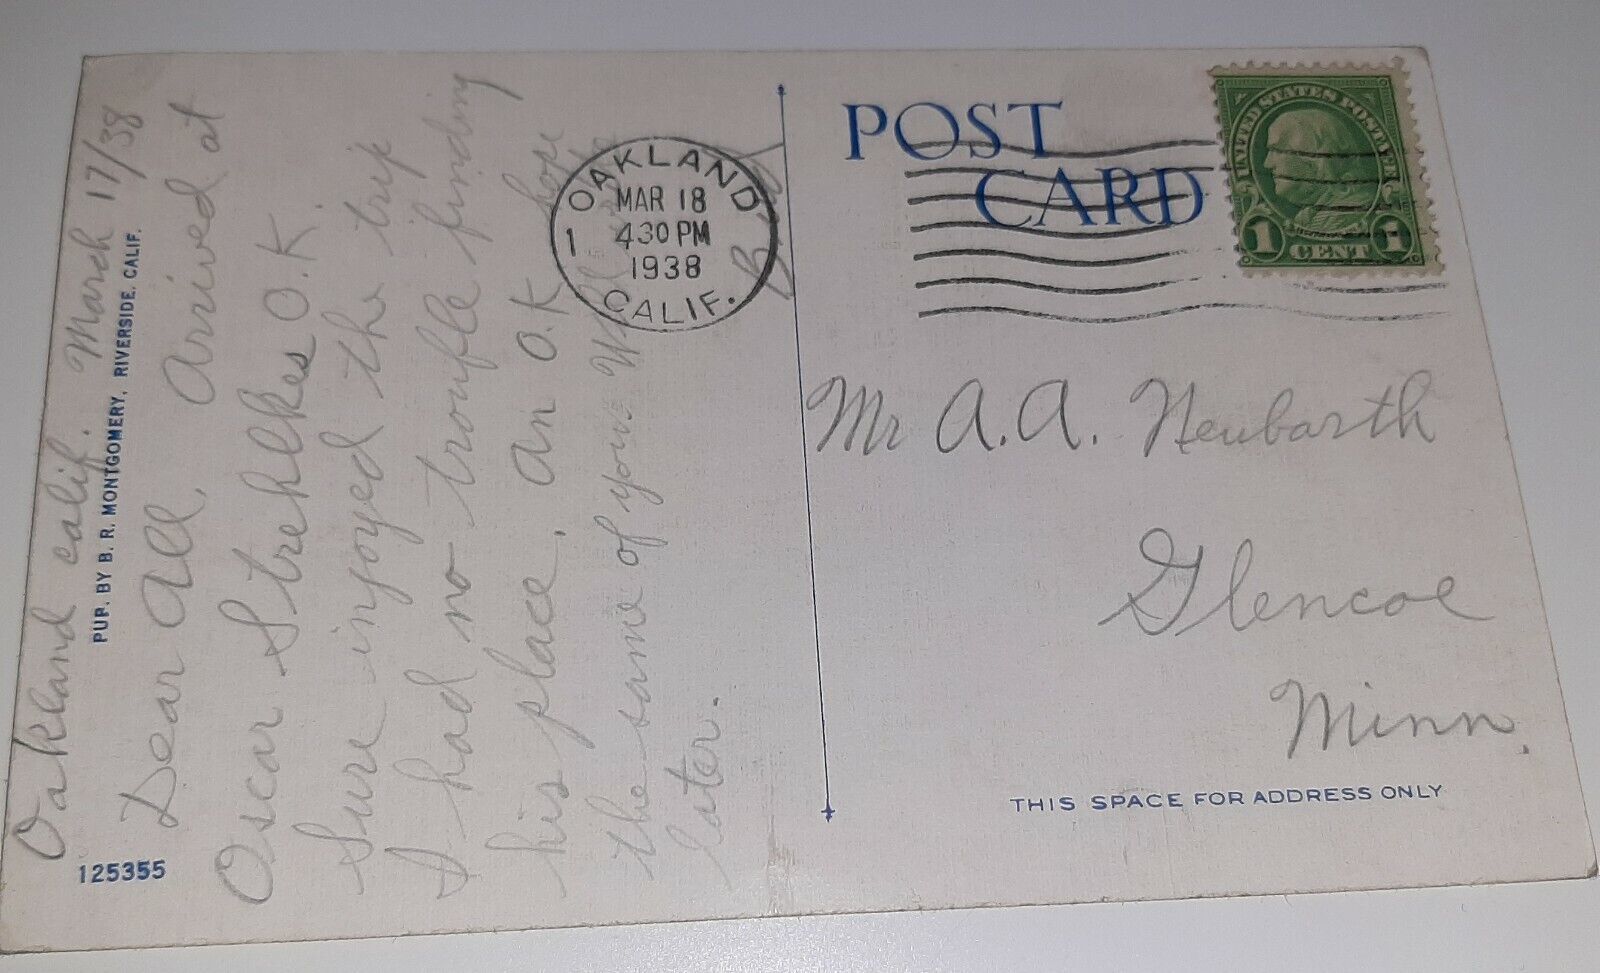 Oakland Calif. March 17/38
Dear All, Arrived at
Oscar Strehlkes O.K.
Sure injoyed the trip
I had no trouble finding
his place, am O.K. hope
the same of you. Will
later.
PUP. BY B. R. MONTGOMERY, RIVERSIDE, CALIF.
125355
OAKLAND
1
MAR 18
430 PM
1938
CALIF.
POST
CARD
UNITED STATES POSTAGE
1 CENT 1
Mr A. A. Neubarth
Glencoe
Minn.
THIS SPACE FOR ADDRESS ONLY